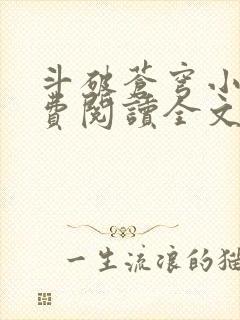 斗破苍穹小
費閱讀全文
一生流浪的猫